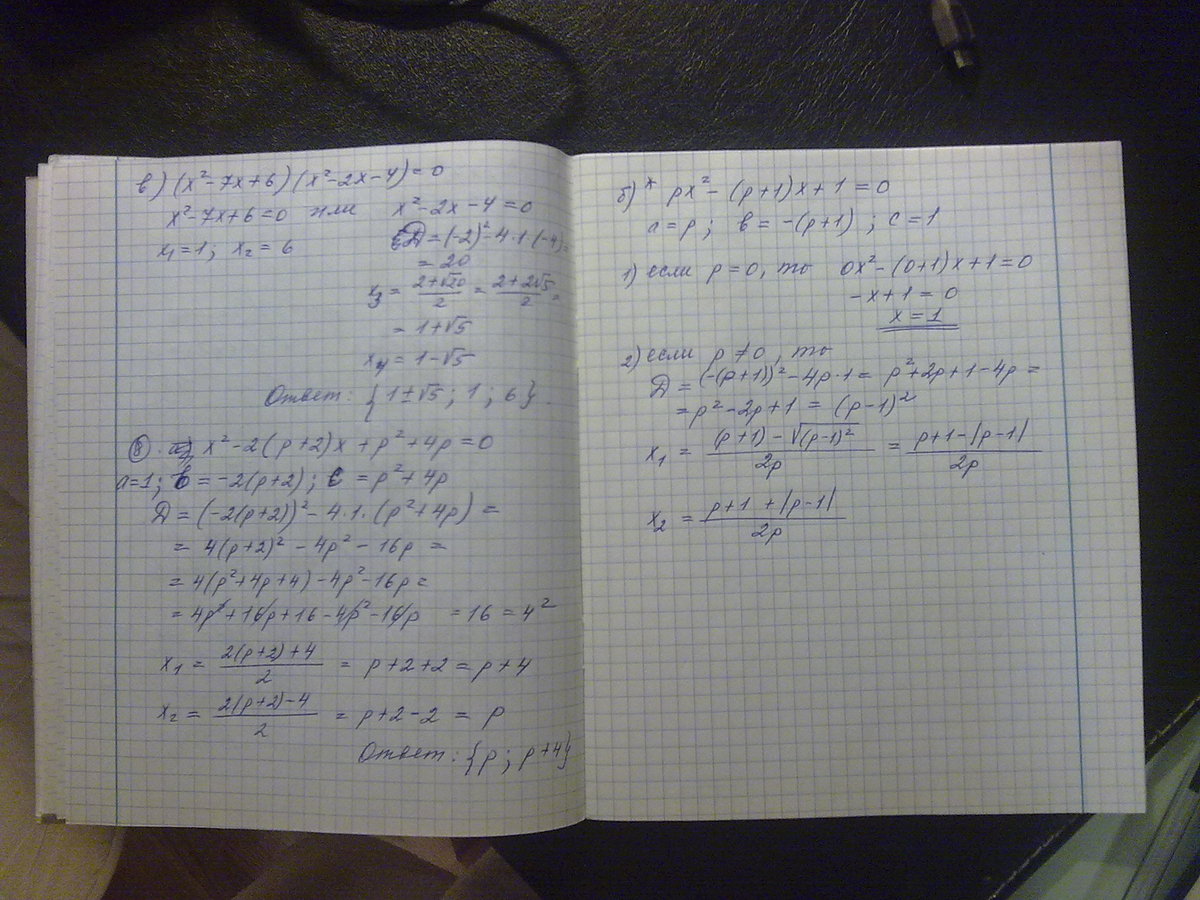 в) (x²-7x+6)(x²-2x-4)=0
x²-7x+6=0 или x²-2x-4=0
x₁=1; x₂=6
Д=(-2)²-4·1(-4)=
=20
x₃ = (2+√20)/2 = (2+2√5)/2 =
= 1+√5
x₄ = 1-√5
Ответ: {1±√5; 1; 6}.
⑧. а) x²-2(p+2)x+p²+4p=0
a=1; b=-2(p+2); c=p²+4p
Д=(-2(p+2))²-4·1·(p²+4p)=
=4(p+2)²-4p²-16p=
=4(p²+4p+4)-4p²-16p=
=4p²+16p+16-4p²-16p =16=4²
x₁ = (2(p+2)+4)/2 = p+2+2=p+4
x₂ = (2(p+2)-4)/2 = p+2-2 = p
Ответ: {p; p+4}
б)* px²-(p+1)x+1=0
a=p; b=-(p+1); c=1
1) если p=0, то 0x²-(0+1)x+1=0
-x+1=0
x=1
2) если p≠0, то
Д=(-(p+1))²-4p·1=p²+2p+1-4p=
=p²-2p+1=(p-1)²
x₁ = ((p+1)-√(p-1)²)/2p = (p+1-|p-1|)/2p
x₂ = (p+1+|p-1|)/2p